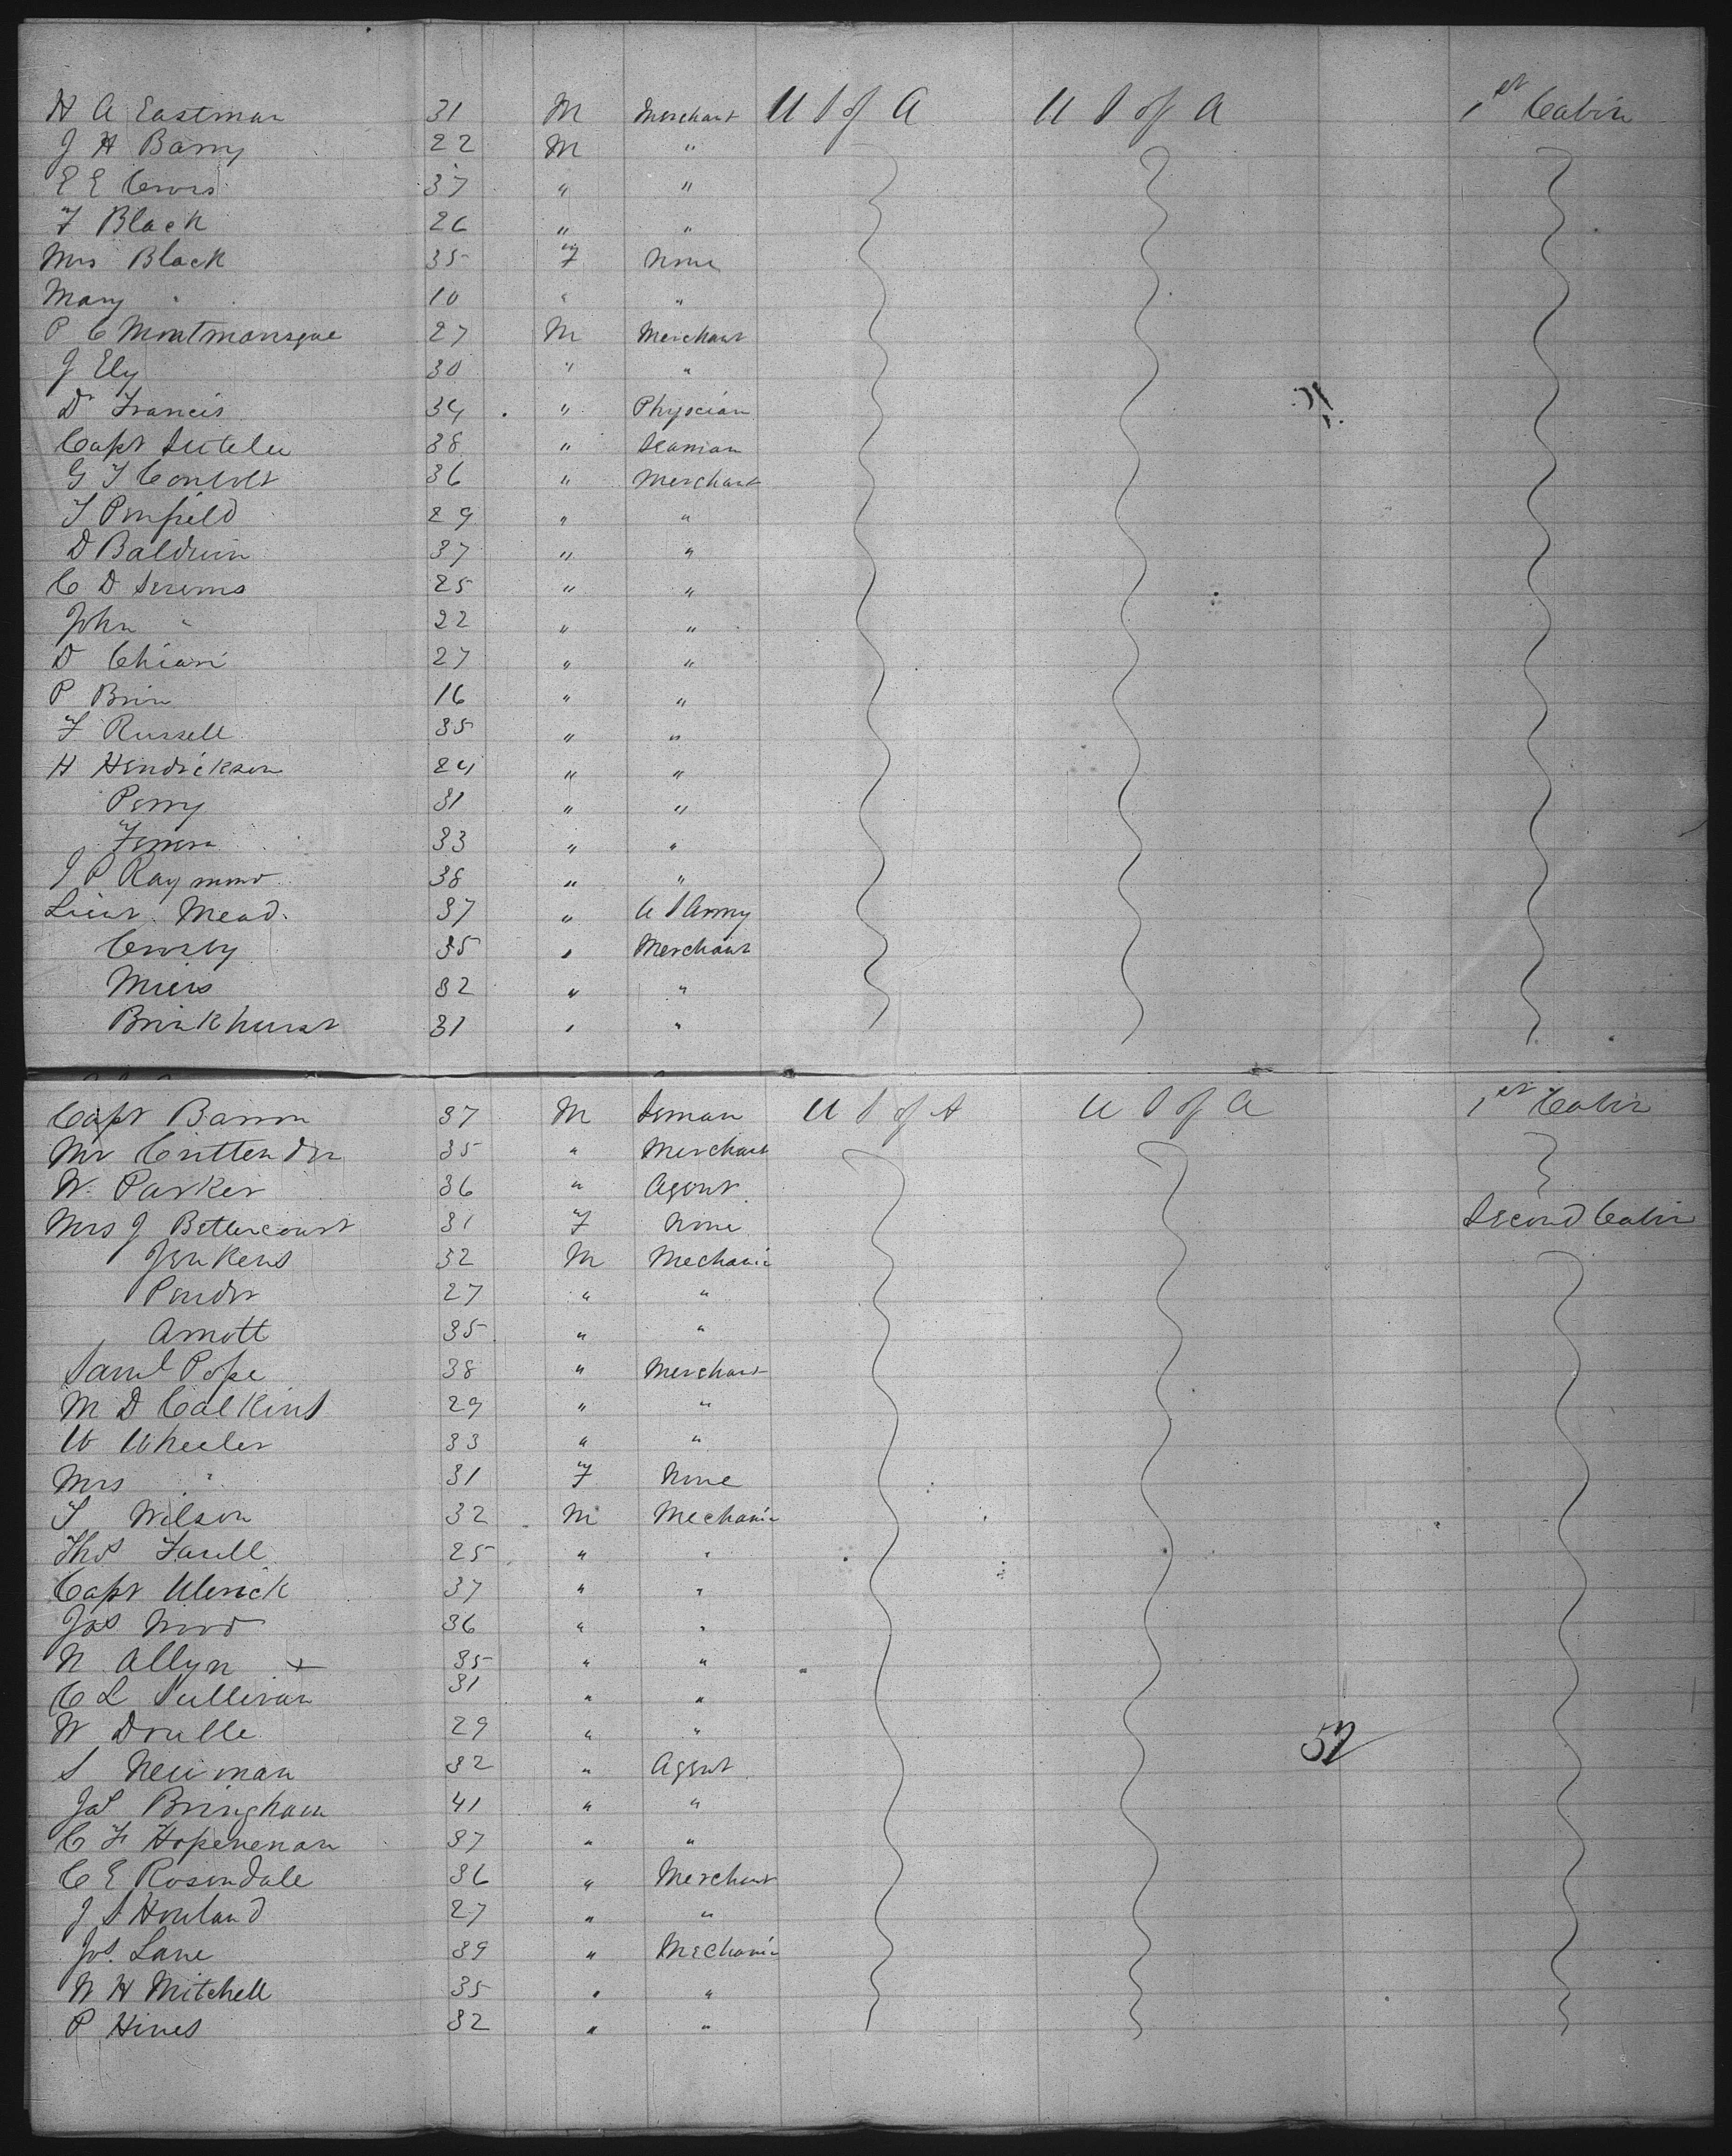 H A Eastman 31 M Merchant U S of A U S of A 1st Cabin
J H Barry 22 M "
E E Cross 37 " "
F Black 26 " "
Mrs Black 35 F None
Mary " 10 " "
P C Montmarsque 27 M Merchant
J Ely 30 " "
Dr Francis 34 " Physcian
Capt 38 " Seaman
G T 36 " Merchant
T Penfield 29 " "
D Baldwin 37 " "
C D 25 " "
John " 22 " "
D Chiari 27 " "
P Brin 16 " "
F Russell 35 " "
H Hendrickson 24 " "
Perry 31 " "
33 " "
J P Raymond 38 " "
Lieut. Mead. 37 " U S Army
Crosby 35 " Merchant
Miers 32 " "
Brinkhurst 31 " "
Capt Barron 37 M Seman U S of A U S of A 1st Cabin
Mr Crittenden 35 " Merchant
W. Parker 36 " Agent
Mrs J Bettercourt 31 F None Second Cabin
Jenkens 32 M Mechanic
Ponder 27 " "
Arnott 35 " "
Saml Pope 38 " Merchant
M D Calkins 29 " "
W Wheeler 33 " "
Mrs " 31 F None
T Wilson 32 M Mechanic
Thos Farell 25 " "
Capt Ulerick 37 " "
Jas Wood 36 " "
N Allyn + 35 " "
C L Sullivan 31 " "
W Doulle 29 " "
52
S Neuman 32 " Agent
Jas Bringham 41 " "
C F Hopeneman 37 " "
C E Rosendale 36 " Merchant
J S Howland 27 " "
Jos. Lane 39 " Mechanic
W H Mitchell 35 " "
P Hines 32 " "